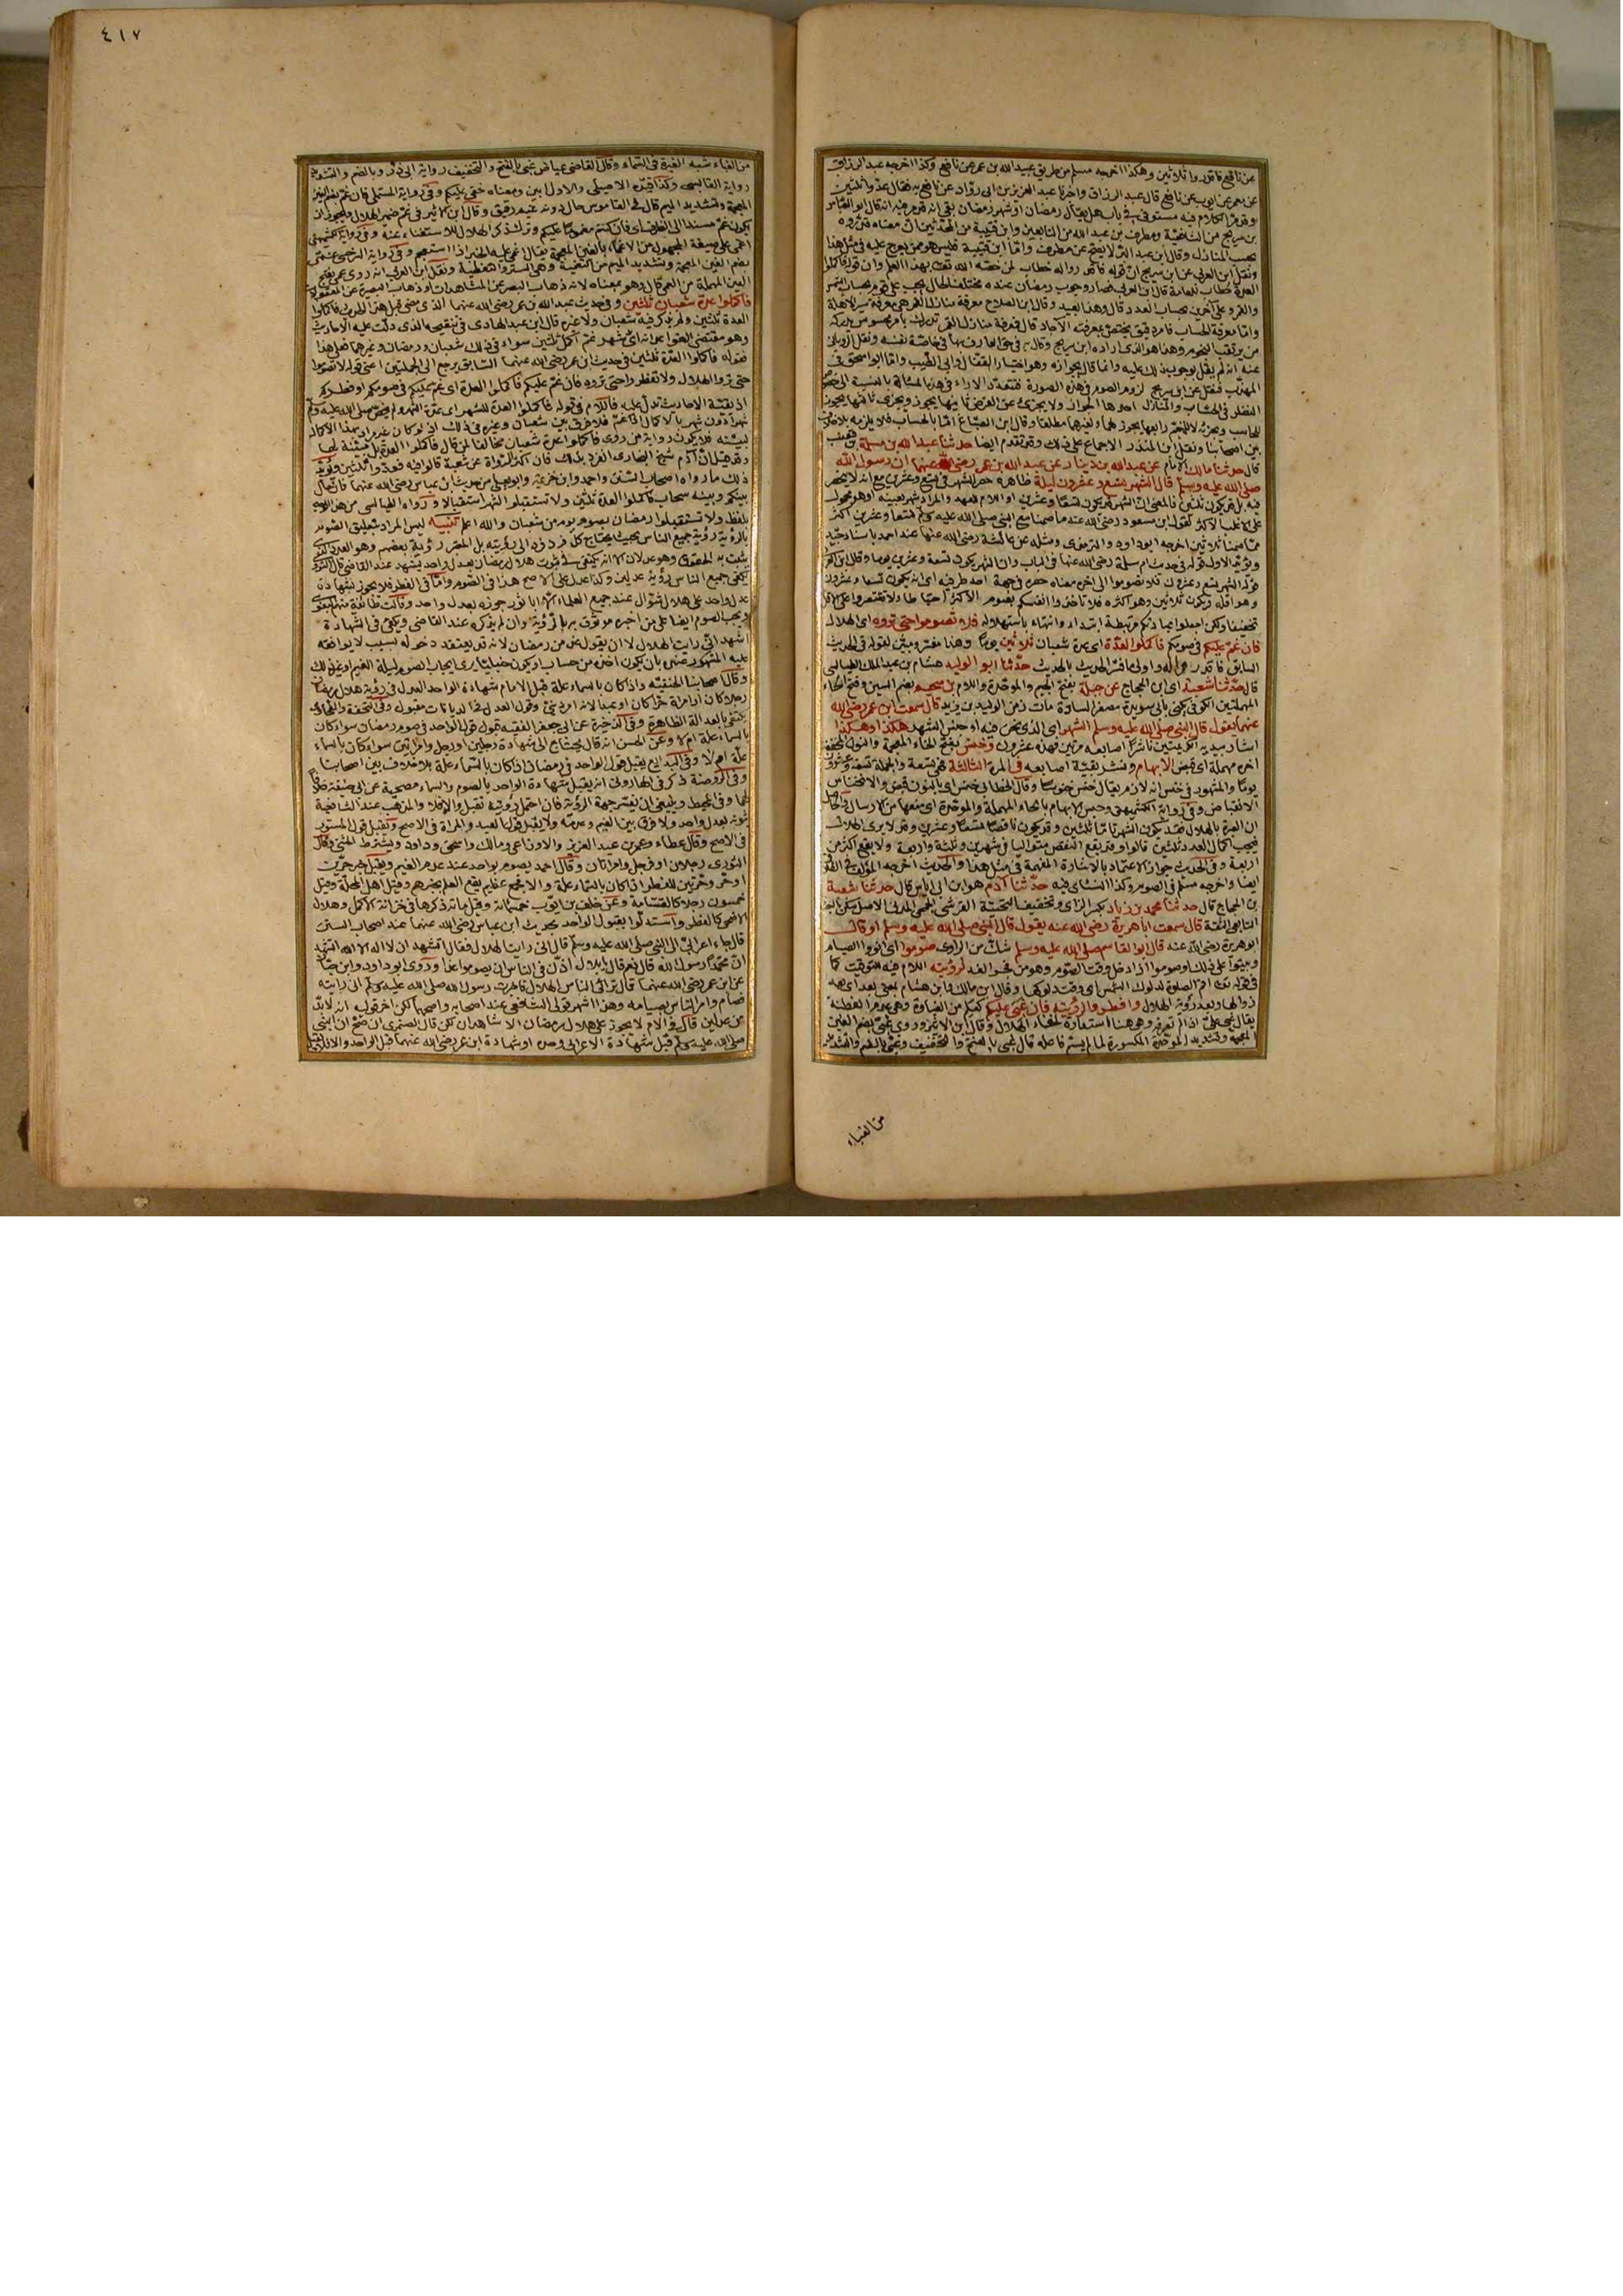 عن نافع فاقدروا ثلاثين وهكذا اخرجه مسلم من طريق عبيد الله بن عمر عن نافع وكذا اخرجه عبد الرزاق
عن معمر عن ايوب عن نافع قال عبد الرزاق واخبرنا عبد العزيز بن ابى روّاد عن نافع به فقال عدّوا ثلثين
وقد مرّ الكلام فيه مستوفى فى باب هل يقال رمضان او شهر رمضان بقى انه قد مر فيه انه قال ابو العباس
بن سريج من الشافعية ومطرف بن عبد الله من التابعين وابن قتيبة من المحدّثين ان معناه قدّروه
بحسب المنازل وقال ابن عبد البرّ لا يصح عن مطرف وامّا ابن قتيبة فليس هو ممن يعرج عليه فى مثل هذا
ونقل ابن العربى عن ابن سريج ان قوله فاقدروا له خطاب لمن خصّه الله تعالى بهذا العلم وان قوله فاكملوا
العدة خطاب للعامة قال ابن العربى فصار وجوب رمضان عنده مختلف الحال يجب على قوم بحساب الشمس
والقمر وعلى آخرين بحساب العدد قال وهذا بعيد وقال ابن الصلاح معرفة منازل القمر هى معرفة سير الاهلة
وامّا معرفة الحساب فامر دقيق يختص بمعرفته الآحاد قال فمعرفة منازل القمر تدرك بامر محسوس يدركه
من يرتقب النجوم وهذا هو الذى اراده ابن سريج وقال به فى حق العارف بها فى خاصّة نفسه ونقل الرويانى
عنه انه لم يقل بوجوب ذلك عليه وانما قال بجوازه وهو اختيار القفال وابى الطيب وامّا ابو اسحق فى
المهذّب فنقل عن ابن سريج لزوم الصوم فى هذه الصورة فتعدّد الآراء فى هذه المسالة بالنسبة الى خصوص
النظر فى الحساب والمنازل احدها الجواز ولا يجزئ عن الفرض ثانيها يجوز ويجزئ ثالثها يجوز
للحاسب ويجزئه لا للمنجّم رابعها يجوز لهما ولغيرهما مطلقا وقال ابن الصبّاغ امّا بالحساب فلا يلزمه بلا خلاف
بين اصحابنا ونقل ابن المنذر الاجماع على ذلك وقد تقدم ايضا حدثنا عبد الله بن مسلمة بن قعنب
قال حدثنا مالك الامام عن عبد الله بن دينار عن عبد الله بن عمر رضى الله عنهما ان رسول الله
صلى الله عليه وسلم قال الشهر تسع وعشرون ليلة ظاهره حصر الشهر فى تسع وعشرين مع انه لا ينحصر
فيه بل قد يكون ثلثين فالمعنى ان الشهر قد يكون تسعا وعشرين او اللام للعهد والمراد شهر بعينه او هو محمول
على الاغلب الاكثر كقول ابن مسعود رضى الله عنه ما صمنا مع النبى صلى الله عليه وسلم تسعا وعشرين اكثر
ممّا صمنا ثلاثين اخرجه ابو داود والترمذى ومثله عن عائشة رضى الله عنها عند احمد باسناد جيّد
ويؤيّد الاول قوله فى حديث ام سلمة رضى الله عنها فى الباب وان الشهر يكون تسعة وعشرين يوما وقال ابن العربى
قوله الشهر تسع وعشرون فلا تصوموا الى اخره معناه حصره فى جهة احد طرفيه اى انه يكون تسعا وعشرون
وهو اقله ويكون ثلاثين وهو اكثره فلا تاخذوا انفسكم بصوم الاكثر احتياطا ولا تقتصروا على الاقل
تخفيفا ولكن اجعلوا عبادتكم مرتبطة ابتداء وانتهاء باستهلاله فلا تصوموا حتى تروه اى الهلال
فان غمّ عليكم فى صومكم فاكملوا العدّة اى عدة شعبان ثلاثين يوما وهذا مفسّر ومبيّن لقوله فى الحديث
السابق فاقدروا له واولى ما فسّر الحديث بالحديث حدّثنا ابو الوليد هشام بن عبد الملك الطيالسى
قال حدّثنا شعبة اى ابن الحجاج عن جبلة بفتح الجيم والموحّدة واللام بن سحيم بضم السين وفتح الحاء
المهملتين الكوفى يكنى بابى سويرة مصغر السارة مات زمن الوليد بن يزيد قال سمعت ابن عمر رضى الله
عنهما يقول قال النبى صلى الله عليه وسلم الشهر اى الذى نحن فيه او جنس الشهر هكذا وهكذا
اشار بيديه الكريمتين ناشرًا اصابعه مرتين فهذه عشرون وخنس بفتح الخاء المعجمة والنون المخففة
اخره مهملة اى قبض الابهام ونشر بقيّة اصابعه فى المرة الثالثة فهى تسعة والجملة تسعة وعشرون
يوما والمشهور فى خنس انه لازم يقال خنس خنوسا وقال الخطابى خنس اى بالنون قبض والانخناس
الانقباض وفى رواية الكشميهنى وحبس الابهام بالحاء المهملة والموحّدة اى منعها من الارسال والحاصل
ان العبرة بالهلال فقد يكون الشهر تامّا ثلثين وقد يكون ناقصًا تسعًا وعشرين وقد لا يرى الهلال
فيجب اكمال العدد ثلثين قالوا وقد يقع النقص متواليا فى شهرين وثلثة واربعة ولا يقع اكثر من
اربعة وفى الحديث جواز الاعتماد بالاشارة المفهمة فى مثل هذا والحديث اخرجه المؤلف فى الطلاق
ايضا واخرجه مسلم فى الصوم وكذا النسائى فيه حدّثنا آدم هو ابن ابى اياس قال حدثنا شعبة
بن الحجاج قال حدثنا محمد بن زياد بكسر الزاى وتخفيف التحتيّة القرشى الجمحى المدنى الاصل سكن البصرة
التابعى الثقة قال سمعت ابا هريرة رضى الله عنه يقول قال النبى صلى الله عليه وسلم او قال
ابو هريرة رضى الله عنه قال ابو القاسم صلى الله عليه وسلم شك من الراوى صوموا اى انووا الصيام
وبيّتوا على ذلك او صوموا اذا دخل وقت الصوم وهو من فجر الغد لرؤيته اللام فيه للتوقيت كما
فى قوله تعالى اقم الصلوة لدلوك الشمس اى وقت دلوكها وقال ابن مالك وابن هشام بمعنى بعد اى بعد
زوالها وبعد رؤية الهلال وافطروا لرؤيته فان غبى عليكم كعَلِم من الغباوة وهى عدم الفطنة
يقال غبى علىّ اذا لم تعرفه وهو هنا استعارة لخفاء الهلال وقال ابن الاثير وروى غبّى بضم الغين
المعجمة وتشديد الموحّدة المكسورة لما لم يسمّ فاعله قال غبى بالفتح والتخفيف وغبّى بالضم والتشديد
من الغباء
٤١٧
من الغباء شبه الغبرة فى السّماء وقال القاضى عياض غبى بالفتح والتخفيف رواية ابى ذر وبالضم والتشديد
رواية القابسى وكذا قيّده الاصيلى والاول ابين ومعناه خفى عليكم وفى رواية المستملى فان غمّ بضم الغين
المعجمة وتشديد الميم قال فى القاموس حال دونه غيم رقيق وقال ابن الاثير فى غمّ ضمير الهلال ويجوز ان
يكون غمّ مسندا الى الظرف اى فان كنتم مغموما عليكم وترك ذكر الهلال للاستغناء عنه وفى رواية الكشميهنى
اغمى على صيغة المجهول من الاغماء بالغين المعجمة يقال غمى عليه الخبر اذا استعجم وفى رواية السرخسى غمّى
بضم الغين المعجمة وتشديد الميم من التغمية وهى الستر والتغطية ونقل ابن العربى انه روى عمى بفتح
العين المهملة من العمى قال وهو بمعناه لانه ذهاب البصر عن المشاهدات او ذهاب البصيرة عن المعقولات
فاكملوا عدة شعبان ثلثين وفى حديث عبد الله بن عمر رضى الله عنهما الذى مضى قبل هذا الحديث فاكملوا
العدة ثلثين ولم يذكر فيه شعبان ولا غيره قال ابن عبد الهادى فى تنقيحه الذى دلّت عليه الاحاديث
وهو مقتضى القواعد انه اىّ شهر غمّ اكمل ثلثين سواء فى ذلك شعبان ورمضان وغيرهما فعلى هذا
فقوله فاكملوا العدّة ثلثين فى حديث ابن عمر رضى الله عنهما السّابق يرجع الى الجملتين اعنى قوله لا تصوموا
حتى تروا الهلال ولا تفطروا حتى تروه فان غمّ عليكم فاكملوا العدة اى غمّ عليكم فى صومكم او فطركم
اذ بقيّة الاحاديث تدلّ عليه فاللام فى قوله فاكملوا العدة للشهر اى عدّة الشهر ولم يخصّ صلى الله عليه وسلم
شهرًا دون شهر بالاكمال اذا غمّ فلا فرق بين شعبان وغيره فى ذلك اذ لو كان غير مراد بهذا الاكمال
لبيّنه فلا تكون رواية من روى فاكملوا عدة شعبان مخالفة لمن قال فاكملوا العدة بل مبيّنة لها
وقد قيل ان آدم شيخ البخارى انفرد بذلك فان اكثر الرّواة عن شعبة قالوا فيه فعدّوا ثلثين ويؤيّد
ذلك ما رواه اصحاب السّنن واحمد وابن خزيمة وابو يعلى من حديث ابن عباس رضى الله عنهما فان حال
بينكم وبينه سحاب فاكملوا العدة ثلثين ولا تستقبلوا الشهر استقبالا ورواه الطيالسى من هذا الوجه
بلفظ ولا تستقبلوا رمضان بصوم يوم من شعبان والله اعلم تنبيه ليس المراد تعليق الصّوم
بالرؤية رؤية جميع الناس بحيث يحتاج كل فرد فرد الى رؤيته بل المعتبر رؤية بعضهم وهو العدد الذى
يثبت به الحقوق وهو عدلان الا انه يكتفى فى ثبوت هلال رمضان بعدل واحد يشهد عند القاضى قال النووى
يكفى جميع الناس رؤية عدلين وكذا عدل على الاصح هذا فى الصّوم وامّا فى الفطر فلا يجوز بشهادة
عدل واحد على هلال شوّال عند جميع العلماء الا ابا ثور جوزه بعدل واحد وقالت طائفة منهم البغوى
ويجب الصوم ايضا على من اخبره موثوق به بالرؤية وان لم يذكره عند القاضى ويكفى فى الشهادة
اشهد انّى رايت الهلال لا ان يقول غدا من رمضان لانه قد يعتقد دخوله بسبب لا يوافقه
عليه المشهود عنده بان يكون اخذه من حساب او يكون حنفيا يرى ايجاب الصوم ليلة الغيم او غير ذلك
وقال اصحابنا الحنفيّة واذا كان بالسماء علة قبل الامام شهادة الواحد العدل فى رؤية هلال رمضان
رجلا كان او امراة حرّا كان او عبدا لانه امر دينىّ وقول العدل فى الديانات مقبول وفى التحفة والطحاوى
يكتفى بالعدالة الظاهرة وفى الذخيرة عن ابى جعفر الفقيه قبول قول الواحد فى صوم رمضان سواء كان
بالسماء علة ام لا وعن الحسن انه قال يحتاج الى شهادة رجلين او رجل وامراتين سواء كان بالسماء
علّة ام لا وفى البدائع يقبل قول الواحد فى رمضان اذا كان بالسّماء علّة بلا خلاف بين اصحابنا
وفى الروضة ذكر فى الهارونى انه يقبل شهادة الواحد بالصوم والسماء مصحية عن ابى حنيفة خلافًا
لهما وفى المحيط وينبغى ان يفسّر جهة الرؤية فان احتمل رؤيته تقبل والا فلا والمذهب عند الشافعية
ثبوته بعدل واحد ولا فرق بين الغيم وعدمه ولا يقبل قول العبد والمراة فى الاصح ويقبل قول المستور
فى الاصح وقال عطاء وعمر بن عبد العزيز والاوزاعى ومالك واسحق وداود ويشترط المثنى وقال
الثورى رجلان او رجل وامراتان وقال احمد يصوم بواحد عند عدم الغيم ويقبل خبر حرّين
او حرّ وحرّتين للفطر اذا كان بالسّماء علّة والا فجمع عظيم يقع العلم بخبرهم وقيل اهل المحلّة وقيل
خمسون رجلا كالقسامة وعن خلف بن ايّوب خمسمائة وقيل مائة ذكرها فى خزانة الاكمل وهلال
الاضحى كالفطر واستدلّوا بقبول الواحد بحديث ابن عباس رضى الله عنهما عند اصحاب السنن
قال جاء اعرابىّ الى النبى صلى الله عليه وسلم قال انى رايت الهلال فقال اتشهد ان لا اله الا الله اتشهد
انّ محمّدًا رسول الله قال نعم قال يا بلال اذّن فى الناس ان يصوموا غدا وروى ابو داود وابن حبّان
عن ابن عمر رضى الله عنهما قال تراءى الناس الهلال فاخبرت رسول الله صلى الله عليه وسلم انى رايته
فصام وامر النّاس بصيامه وهذا اشهر قولى الشافعى عند اصحابه واصحهما لكن آخر قوليه انه لا بدّ
من عدلين قال فى الام لا يجوز على هلال رمضان الا شاهدان لكن قال الصيمرى ان صحّ ان النبى
صلى الله عليه وسلم قبل شهادة الاعرابى وحده او شهادة ابن عمر رضى الله عنهما قبل الواحد والا فلا يقبل